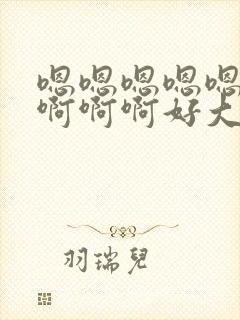 嗯嗯嗯嗯嗯
啊啊啊好大
羽瑞兒